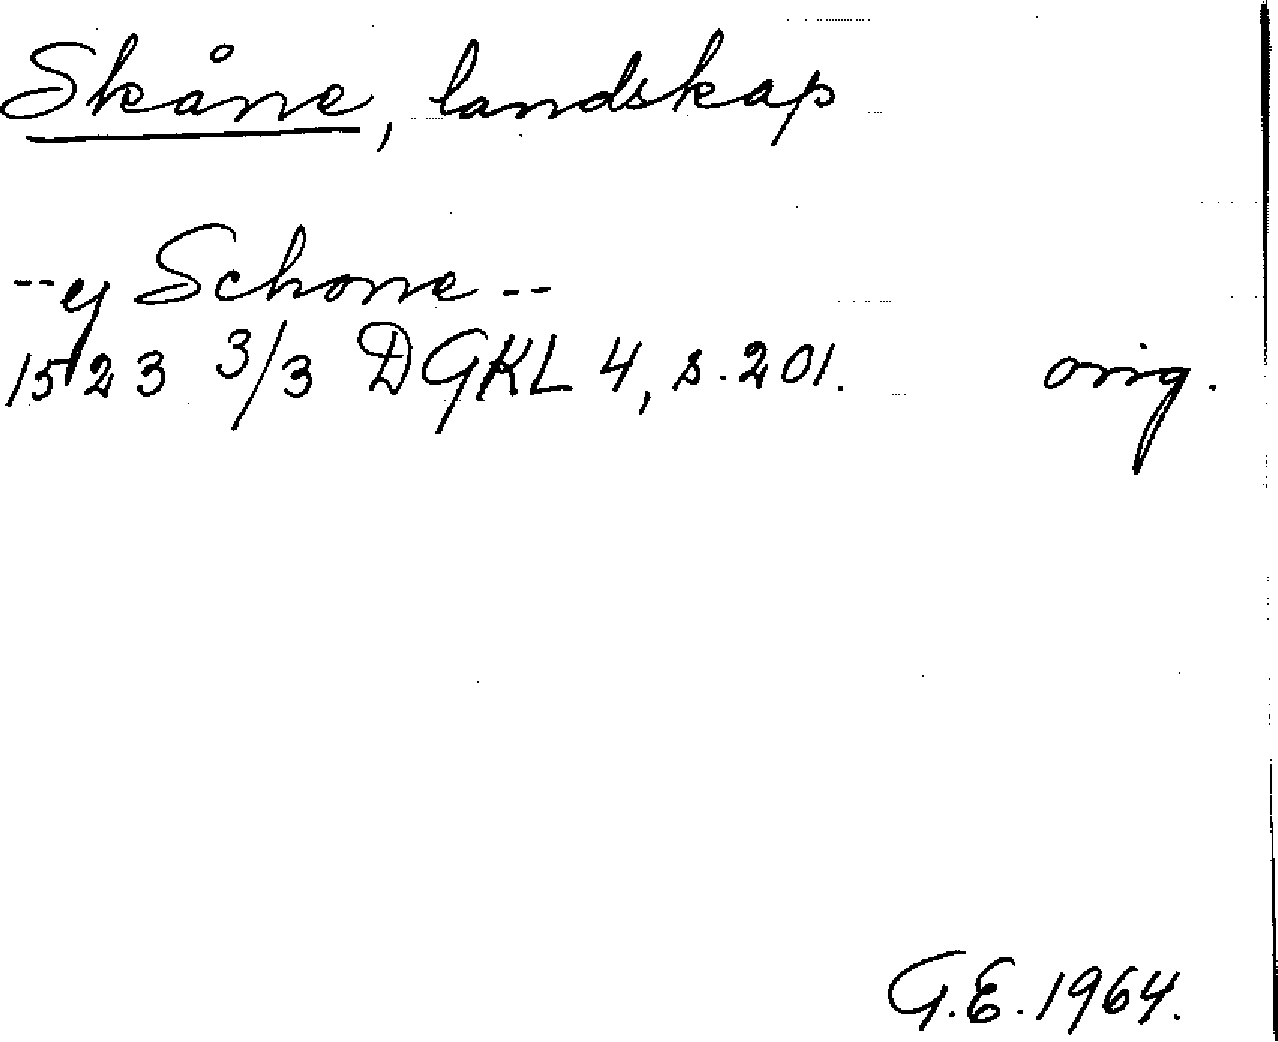 Skåne, landskap
--y Schone--
1523 3/3 DGKL 4, s. 201. orig.
G.E. 1964.